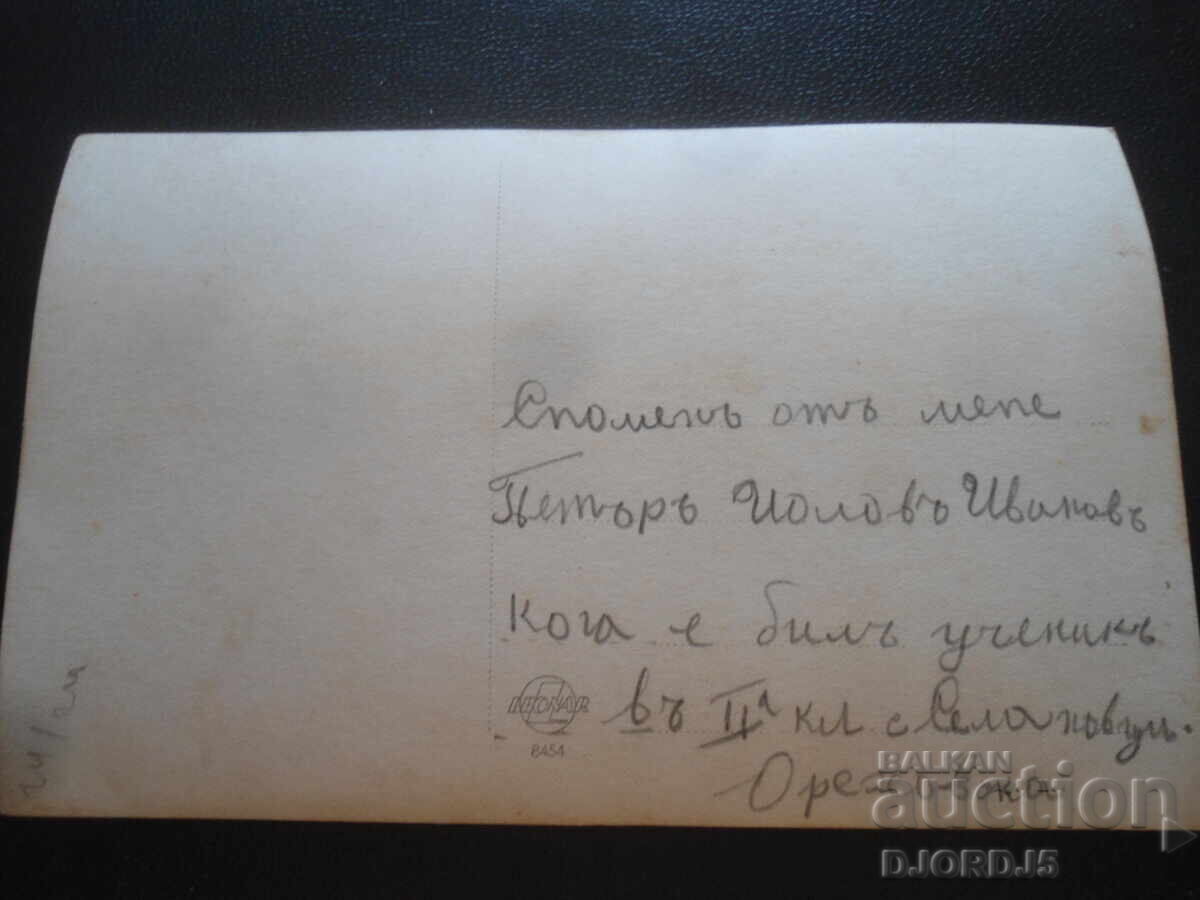 Споменъ отъ мене
Петъръ Иоловъ Ивановъ
Кога е билъ ученикъ
въ IIª кл с Селановци.
Орех
LEONAR
8454
BALKAN
auction
DJORDJ5